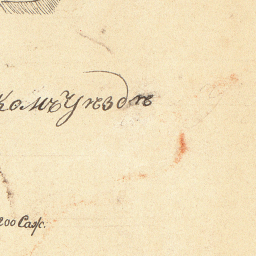 комъ Уѣздѣ
200 Саж.